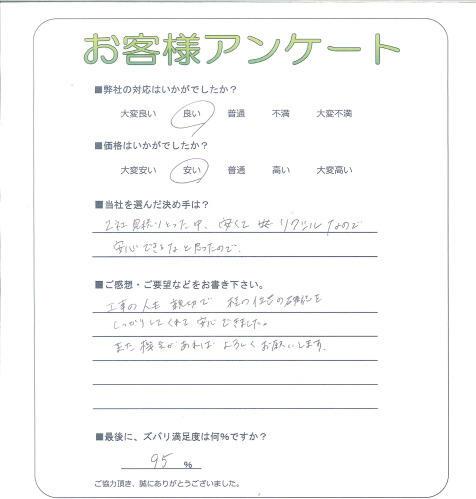 お客様アンケート
■弊社の対応はいかがでしたか？
大変良い 良い 普通 不満 大変不満
■価格はいかがでしたか？
大変安い 安い 普通 高い 大変高い
■当社を選んだ決め手は？
2社見積りとった中、安くて リクシルなので
安心できるなと思ったので。
■ご感想・ご要望などをお書き下さい。
工事の人も 親切で の確認を
しっかりしてくれて 安心できました。
また機会があれば よろしくお願いします。
■最後に、ズバリ満足度は何％ですか？
95 ％
ご協力頂き、誠にありがとうございました。